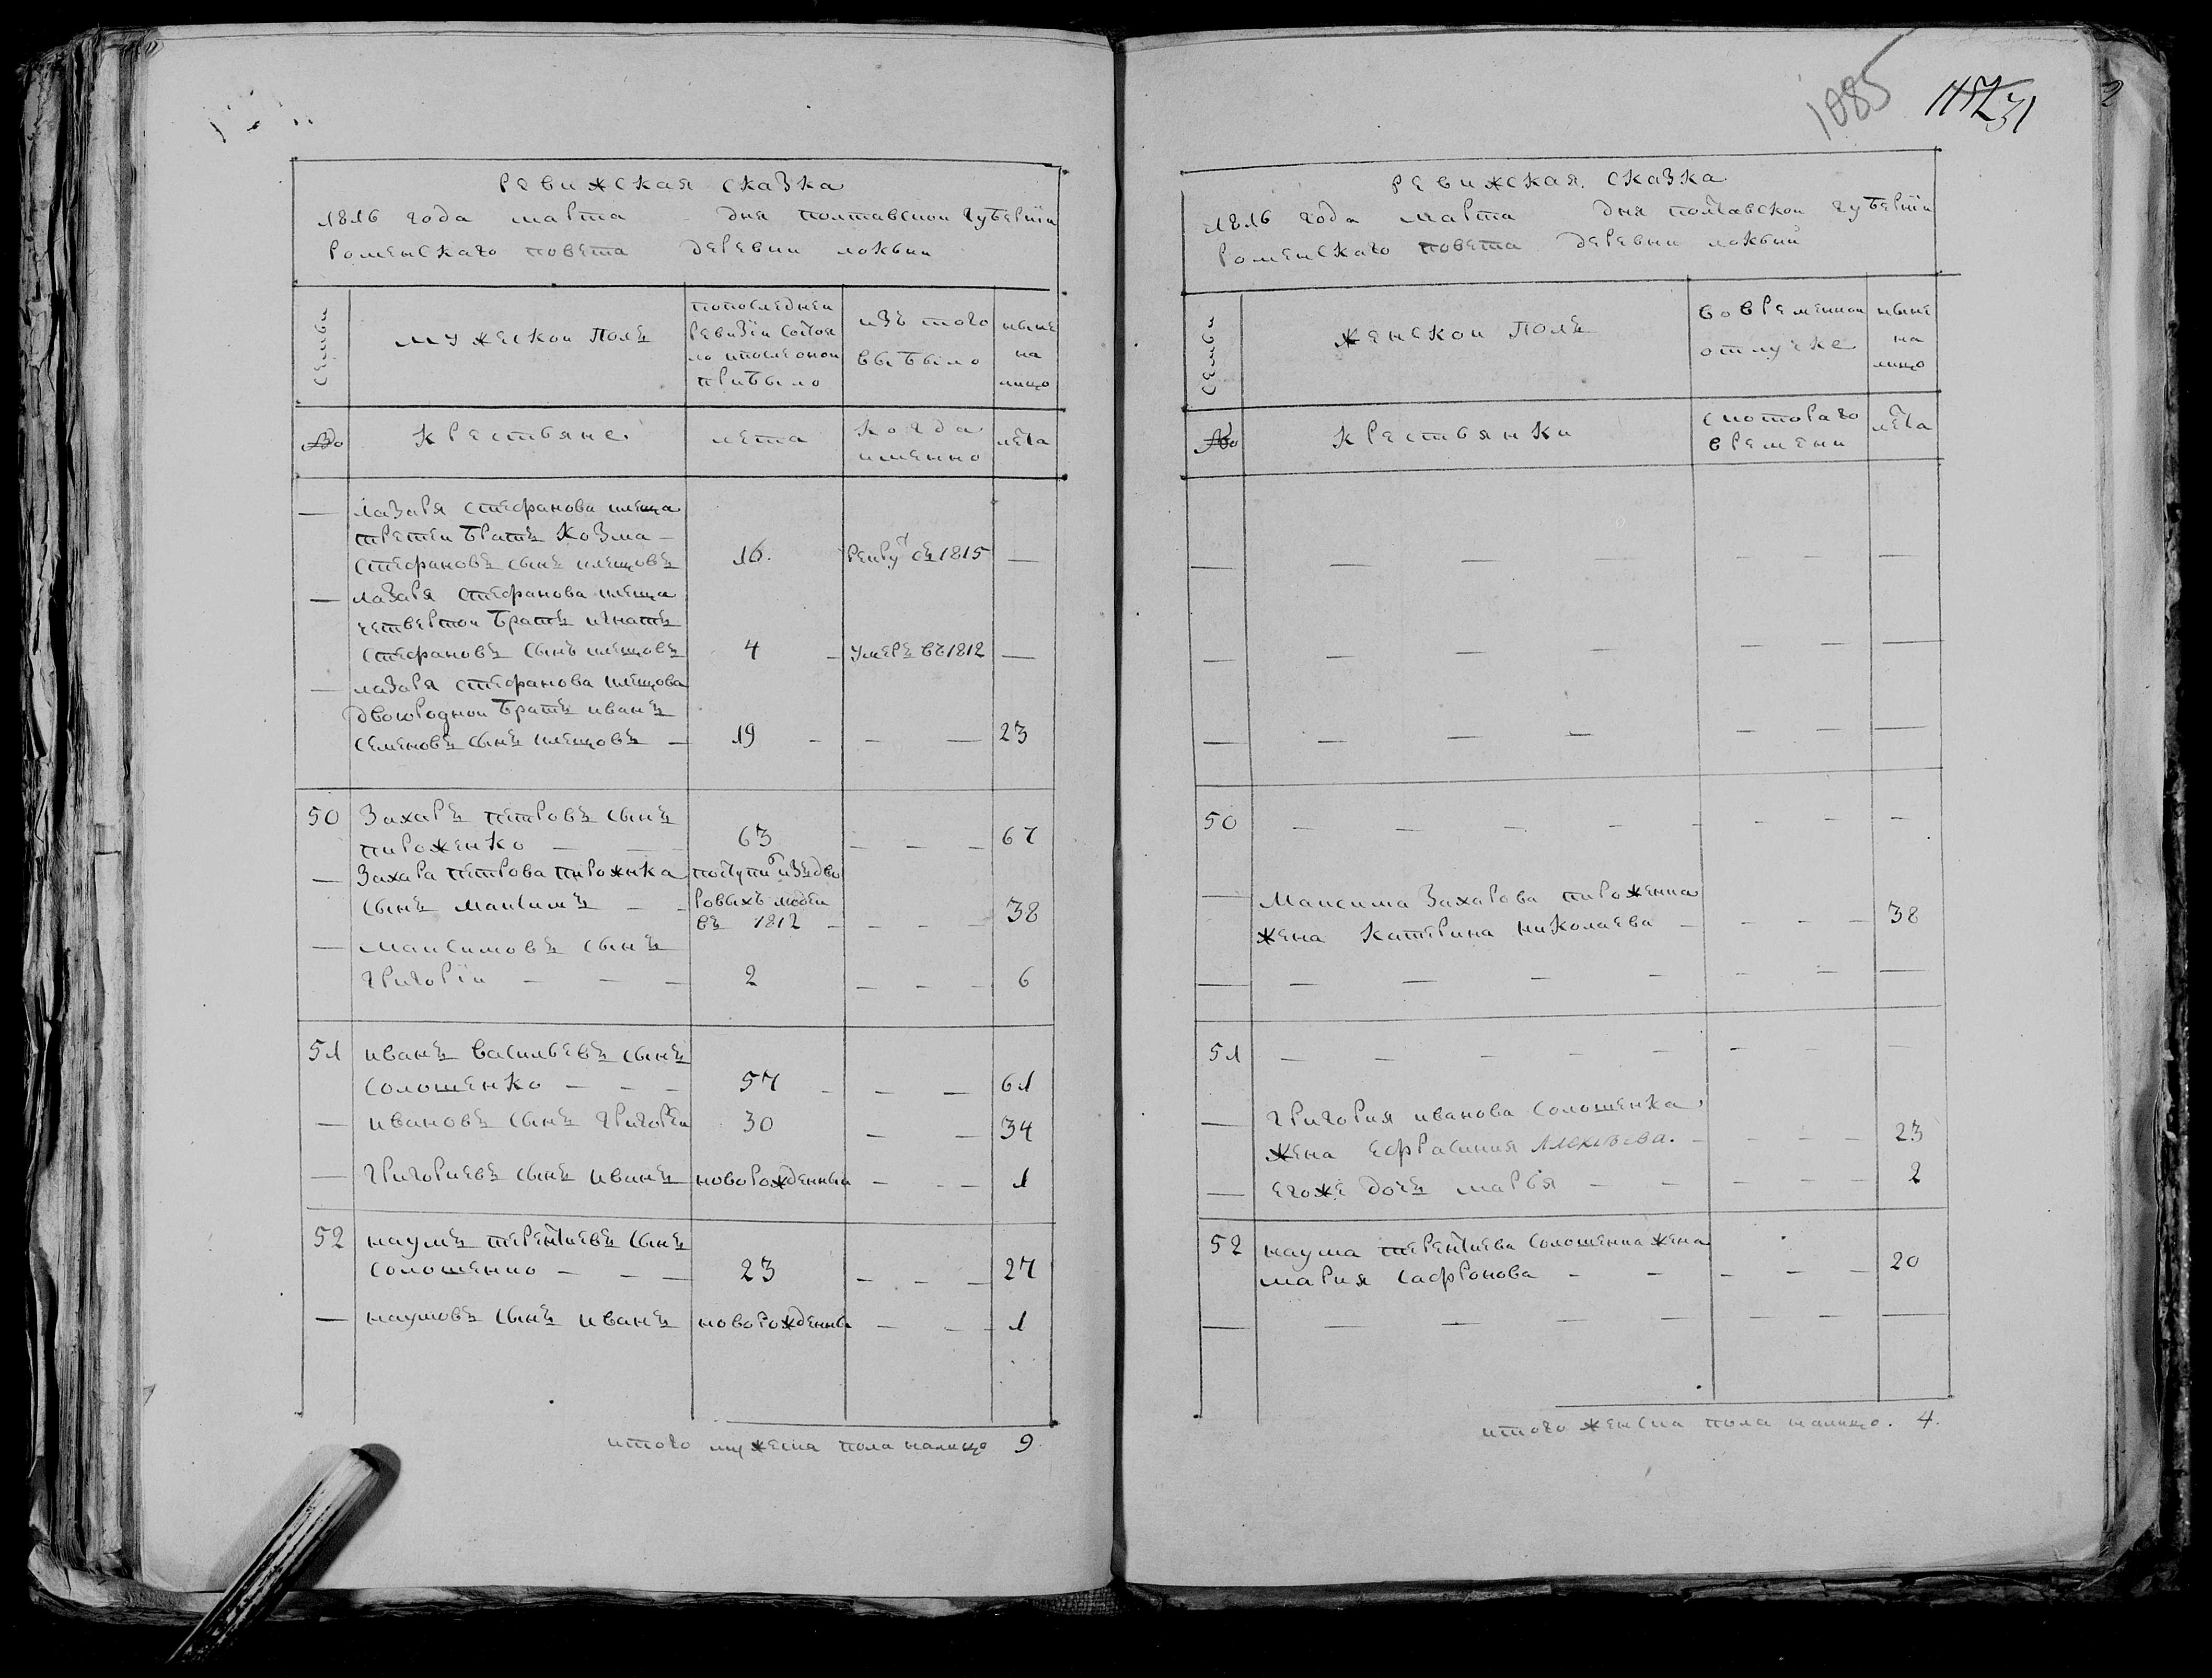 ревижская сказка
1816 года марта дня полтавской губернїи
роменскаго повета деревни локвии
семьи
мужескои полъ
попоследнеи
ревизїи состоя
ло ипослеонои
прибыло
изъ того
выбыло
ныне
на
лицо
№
крестьяне
лета
когда
именно
лета
— лазаря стефанова
третеи братъ козма —
стефановъ сынъ 16. рекру съ 1815 —
— лазаря стефанова
четвертои братъ игнатъ
стефановъ сынъ 4 — умеръ въ 1812 —
— лазаря стефанова
двоюроднои братъ иванъ
семеновъ сынъ — 19 — — — 23
50 Захаръ петровъ сынъ
пироженко — — — 63 — — — 67
— Захара петрова пирожнка поступи изъ дво
сынъ максимъ — — ровыхъ людеи 38
въ 1812 — — — —
— максимовъ сынъ
григорїи — — — 2 — — — 6
51 иванъ васильевъ сынъ
солошенко — — — 57 — — — 61
— ивановъ сынъ григореи 30 — — 34
— григориевъ сынъ иванъ новорожденныи — — — 1
52 наумъ терентиевъ сынъ
солошенко — — — 23 — — — 27
— наумовъ сынъ иванъ новорожденны — — — 1
итого мужеска пола налицо 9
1085 31
ревижская сказка
1816 года марта дня полтавскои губернїи
роменскаго повета деревни локвии
семьи
женскои полъ
во временнои
отлучке
ныне
на
лицо
№
крестьянки
с котораго
времени
лета
— — — — — — —
— — — — — — —
— — — — — — —
50 — — — — — — — —
— максима захарова пироженка
жена катерина николаева — — — — 38
— — — — — — — —
51 — — — — — — — —
— григория иванова солошенка
жена ефрасиния Алексеева. — — — — 23
— егоже дочъ марья — — — — — 2
52 наума терентиева солошенка жена
мария сафронова — — — — — 20
— — — — — — — —
итого женска пола налицо. 4.